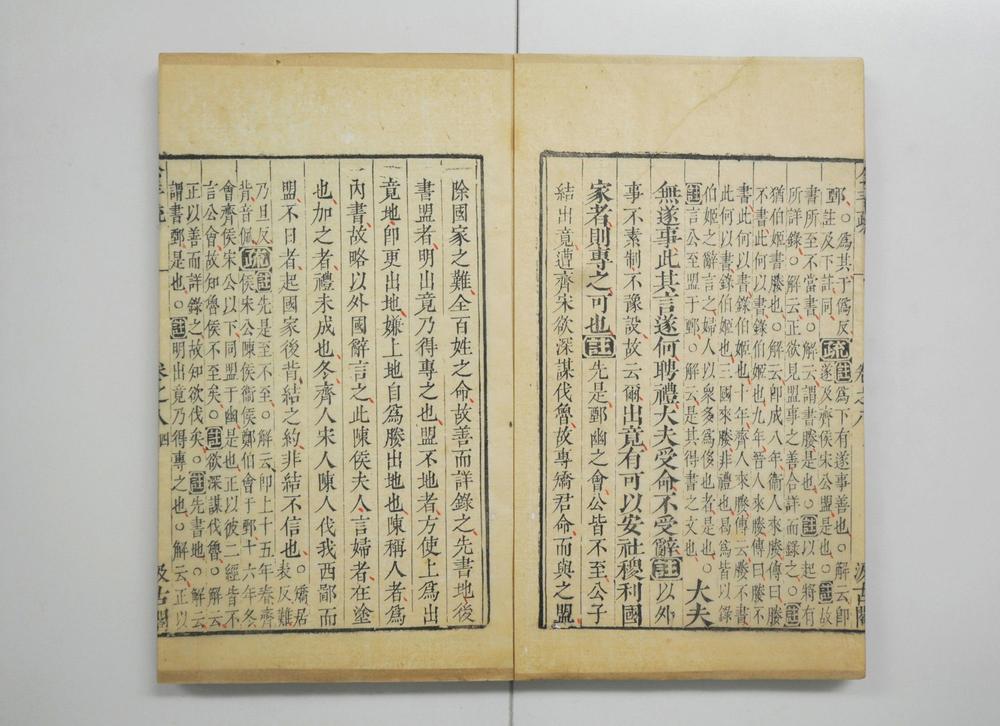 鄄。爲其于僞反疏註爲下有遂事善也。解云即
生及下註同遂及齊侯宋公盟是也。註故
書所至不當書。解云謂書媵是也。註以起將有
所詳錄。解云正欲見盟事之善合詳而錄之。註
猶伯姬書媵也。解云即成八年衞人來媵傳曰媵
不書此何以書錄伯姬也九年晉人來媵傳曰媵不
書此何以書錄伯姬也十年齊人來媵傳云媵不書
此何以書錄伯姬也三國來媵非禮也曷爲皆以錄
伯姬之辭言之婦人以衆多爲侈也者是也。
註言公至盟于鄄。解云是其得書之文也
大夫
無遂事此其言遂何聘禮大夫受命不受辭註以外
事不素制不豫設故云爾出竟有可以安社稷利國
家者則專之可也註先是鄄幽之會公皆不至公子
結出竟遭齊宋欲深謀伐魯故專矯君命而與之盟
除國家之難全百姓之命故善而詳錄之先書地後
書盟者明出竟乃得專之也盟不地者方使上爲出
竟地即更出地嫌上地自爲媵出地也陳稱人者爲
內書故略以外國辭言之此陳侯夫人言婦者在塗
也加之者禮未成也冬齊人宋人陳人伐我西鄙而
盟不日者起國家後背結之約非結不信也。矯居
表反難
乃旦反疏註先是至不至。解云即上十五年春齊
背音佩侯宋公陳侯衞侯鄭伯會于鄄十六年冬
會齊侯宋公以下同盟于幽是也正以彼二經皆不
言公會故知魯侯不至矣。註欲深謀伐魯。解云
正以善而詳錄之故知欲伐矣。註先書地。解云
謂書鄄是也。註明出竟乃得專之也。解云正以
卷之八 四
汲古閣